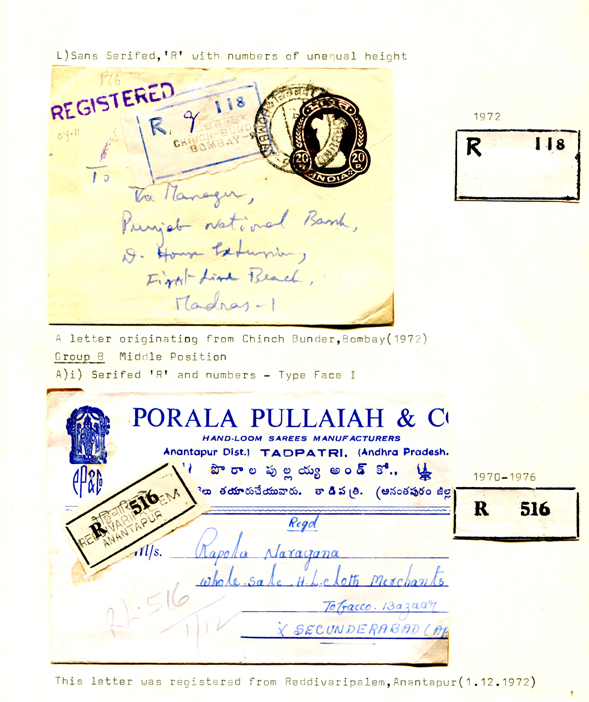 L)Sans Serifed,'R' with numbers of unequal height
REGISTERED
R 118
CHINCH BUNDER
BOMBAY
20
INDIA
20
To
The Manager,
Punjab National Bank,
First Line Beach,
Madras-1
1972
R 118
A letter originating from Chinch Bunder,Bombay(1972)
Group B Middle Position
A)i) Serifed 'R' and numbers - Type Face I
PORALA PULLAIAH & C
HAND-LOOM SAREES MANUFACTURERS
Anantapur Dist.) TADPATRI. (Andhra Pradesh.
పొరాల పుల్లయ్య అండ్ కో.,
తయారుచేయువారు. తాడిపత్రి. (అనంతపురం జిల్ల
R 516
REDDIVARIPALEM
ANANTAPUR
Regd
M/s. Rapolu Narayana
whole sale H.L. cloth Merchants
Tobacco Bazaar
SECUNDERABAD (AP
RL: 516
1/12
1970-1976
R 516
This letter was registered from Reddivaripalem,Anantapur(1.12.1972)